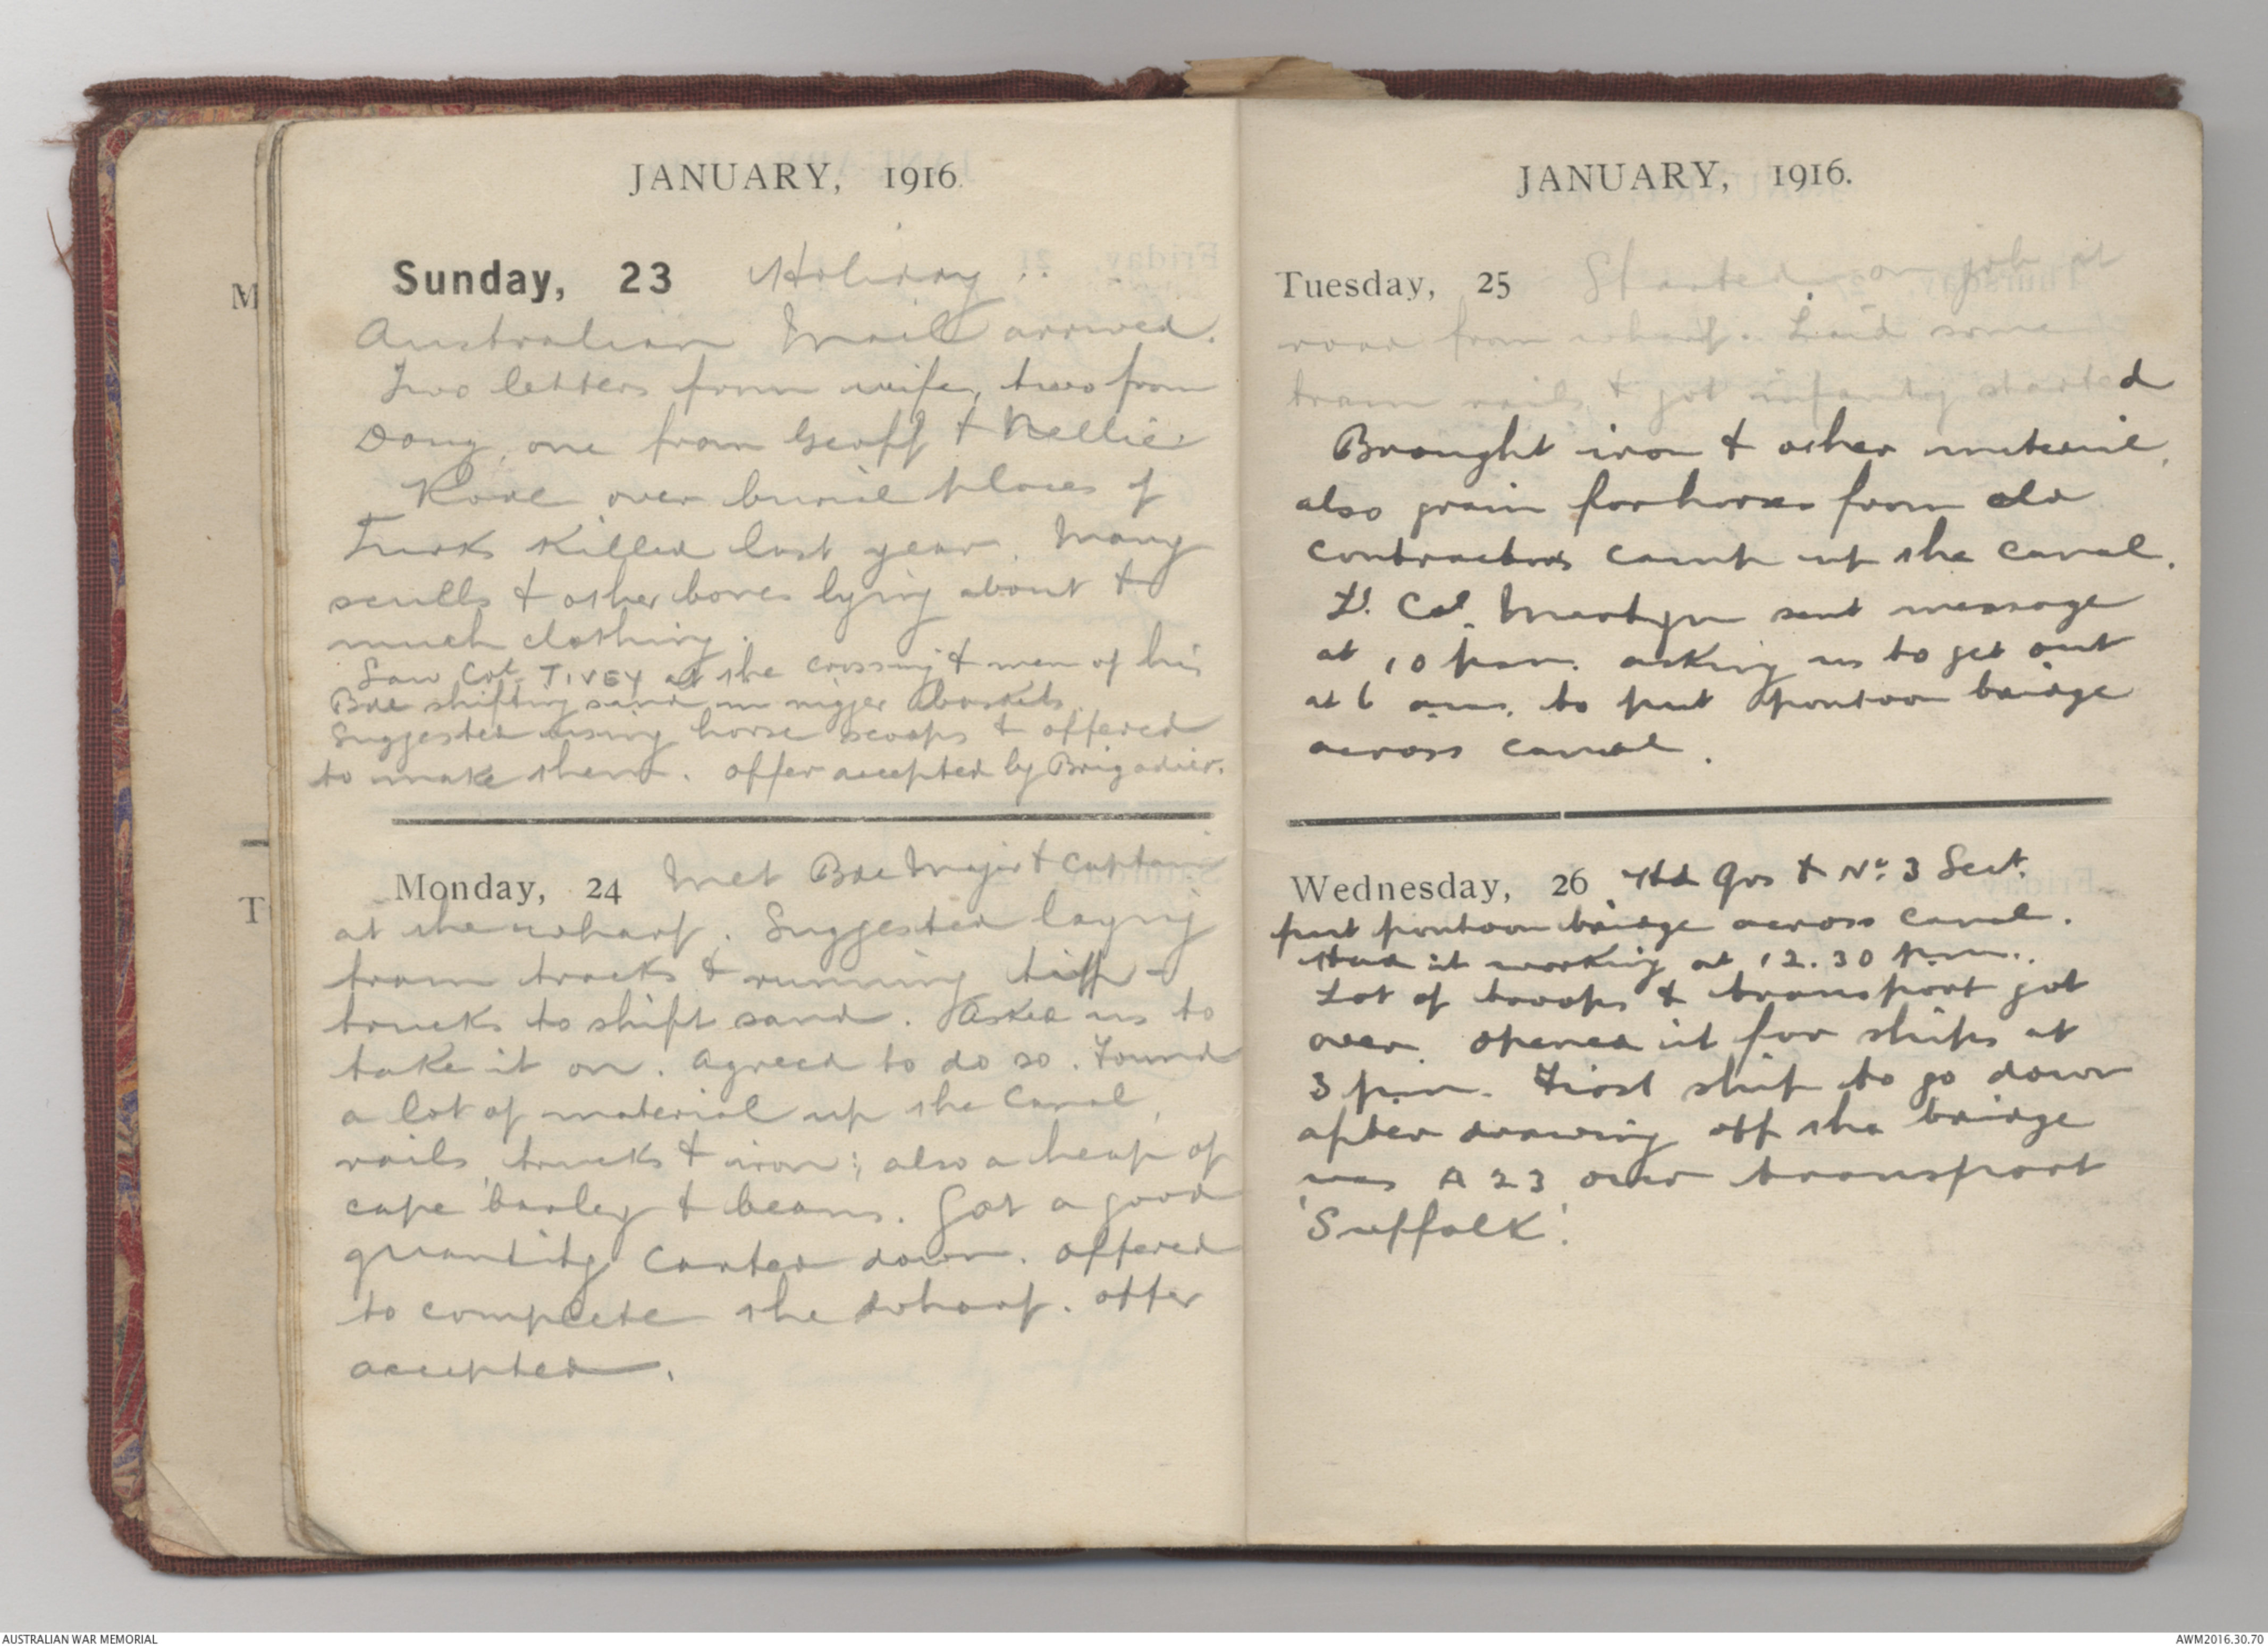 M
T
JANUARY, 1916.
Sunday, 23 Holiday ..
Australian Mail arrived.
Two letters from wife, two from
Doug, one from Geoff & Nellie
Rode over burial places of
Turks killed last year. Many
sculls & other bones lying about &
much clothing.
Saw Col. TIVEY at the crossing & men of his
Bde shifting sand in nigger baskets.
Suggested using horse scoops & offered
to make them. Offer accepted by Brigadier.
Monday, 24 Met Bde Major & Captain
at the wharf. Suggested laying
tram tracks & running tip
trucks to shift sand. Asked us to
take it on. Agreed to do so. Found
a lot of material up the Canal,
rails, trucks & iron; also a heap of
cape barley & beans. Got a good
quantity carted down. Offered
to complete the wharf. Offer
accepted.
JANUARY, 1916.
Tuesday, 25 Started on job at
road from wharf. Laid some
tram rails & got infantry started
Brought iron & other material,
also grain for horses from old
contractors camp up the canal.
Lt. Col. Martyn sent message
at 10 p.m. asking us to get out
at 6 am. to put pontoon bridge
across canal.
Wednesday, 26 Hd Qrs & No. 3 Sect.
put pontoon bridge across canal.
Had it working at 12.30 p.m..
Lot of troops & transport got
over. Opened it for ships at
3 p.m. First ship to go down
after drawing off the bridge
was A 23 our transport
'Suffolk'.
AUSTRALIAN WAR MEMORIAL
AWM2016.30.70